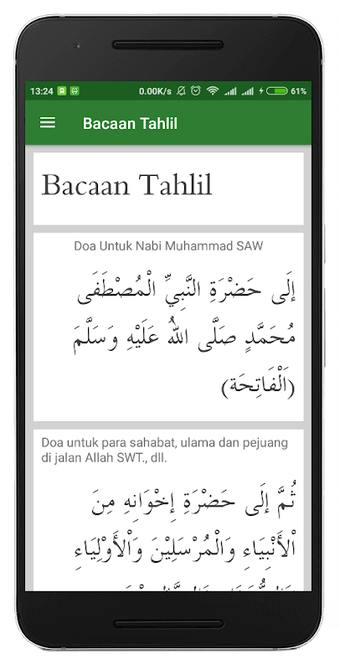 13:24 0.00K/s 61%
Bacaan Tahlil
Bacaan Tahlil
Doa Untuk Nabi Muhammad SAW
إِلَى حَضْرَةِ النَّبِيِّ الْمُصْطَفَى
مُحَمَّدٍ صَلَّى اللهُ عَلَيْهِ وَسَلَّمَ
(اَلْفَاتِحَة)
Doa untuk para sahabat, ulama dan pejuang
di jalan Allah SWT., dll.
ثُمَّ إِلَى حَضْرَةِ إِخْوَانِهِ مِنَ
اْلأَنْبِيَاءِ وَالْمُرْسَلِيْنَ وَاْلأَوْلِيَاءِ